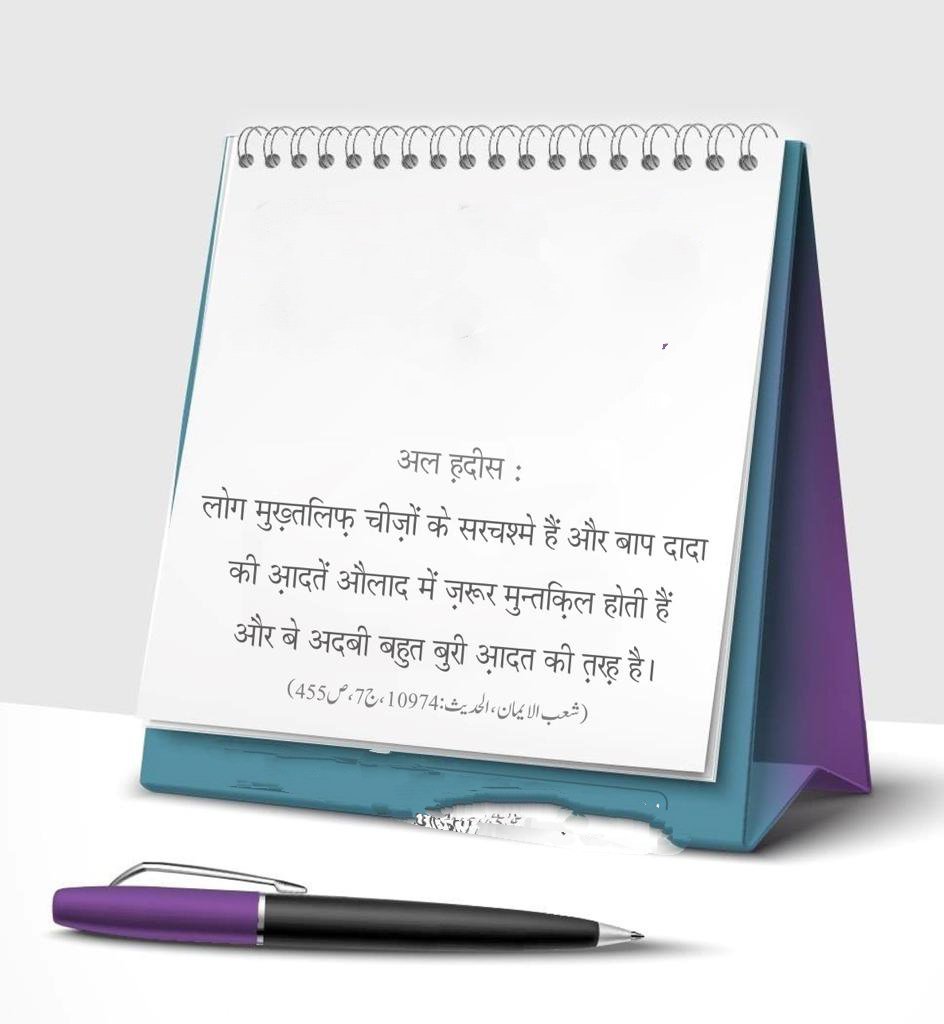 अल ह़दीस :
लोग मुख़्तलिफ़ चीज़ों के सरचश्मे हैं और बाप दादा
की आ़दतें औलाद में ज़रूर मुन्तक़िल होती हैं
और बे अदबी बहुत बुरी आ़दत की त़रह़ है।
(شعب الایمان، الحدیث:10974، ج7، ص455)